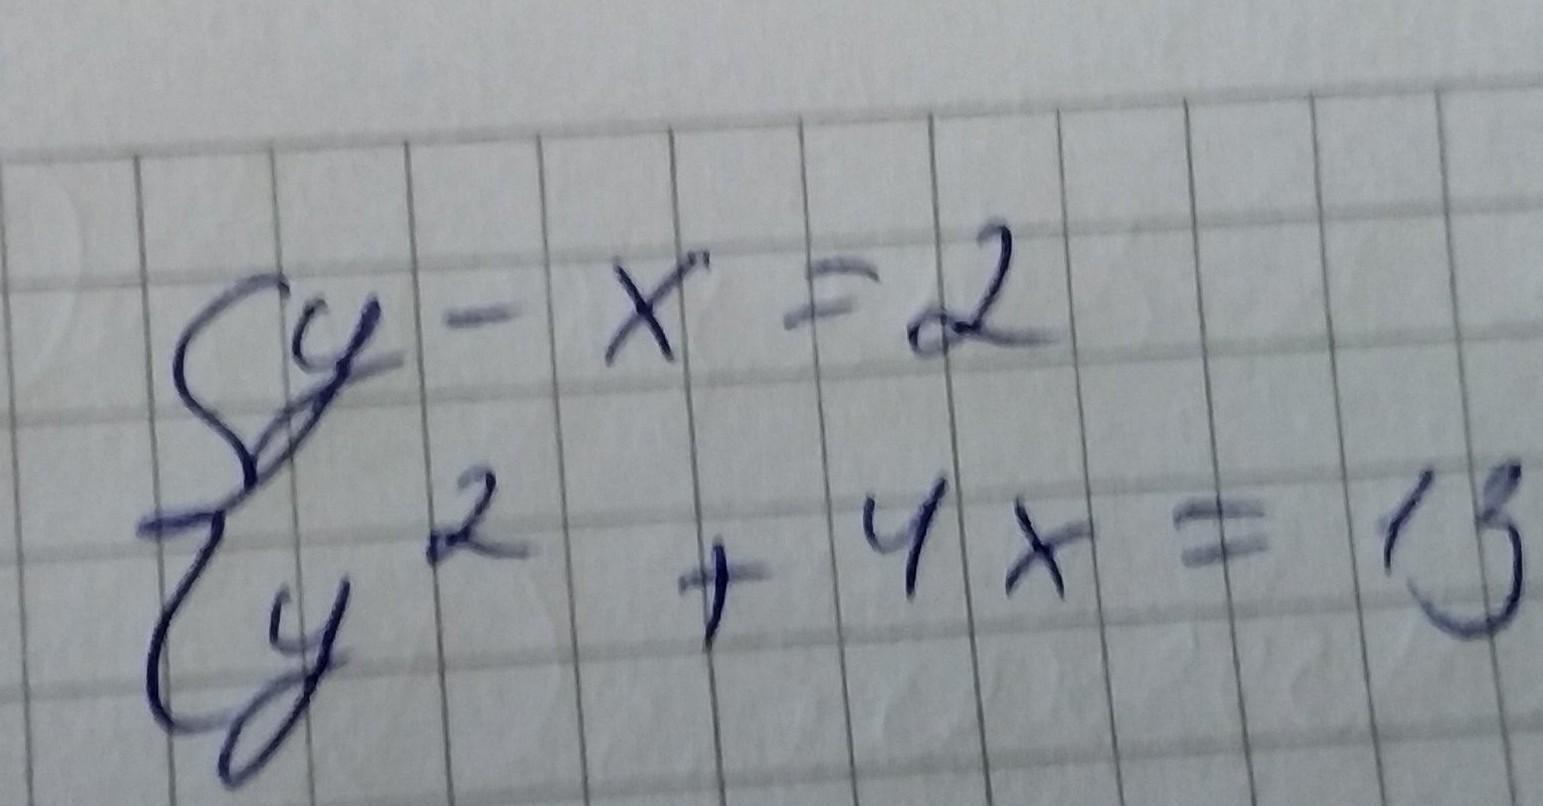 {y - x = 2
y² + 4x = 13